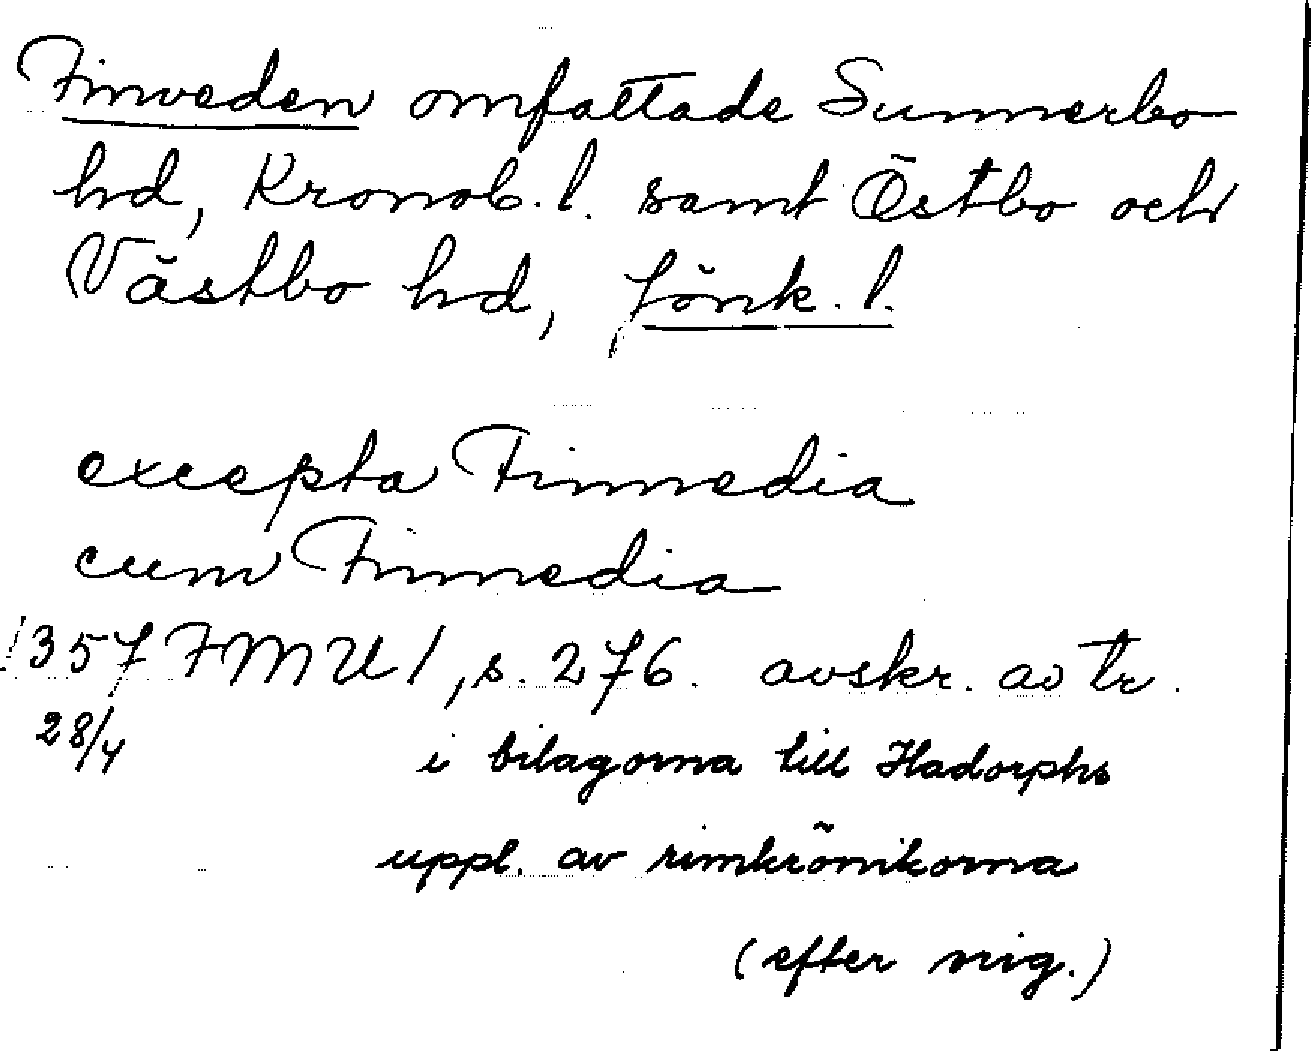 Finveden omfattade Sunnerbo
hd, Kronob. l. samt Östbo och
Västbo hd, Jönk. l.
excepta Finmedia
cum Finmedia
1357 FMU 1, s. 276. avskr. av tr.
28/4 i bilagorna till Hadorphs
uppl. av rimkrönikorna
(efter orig.)